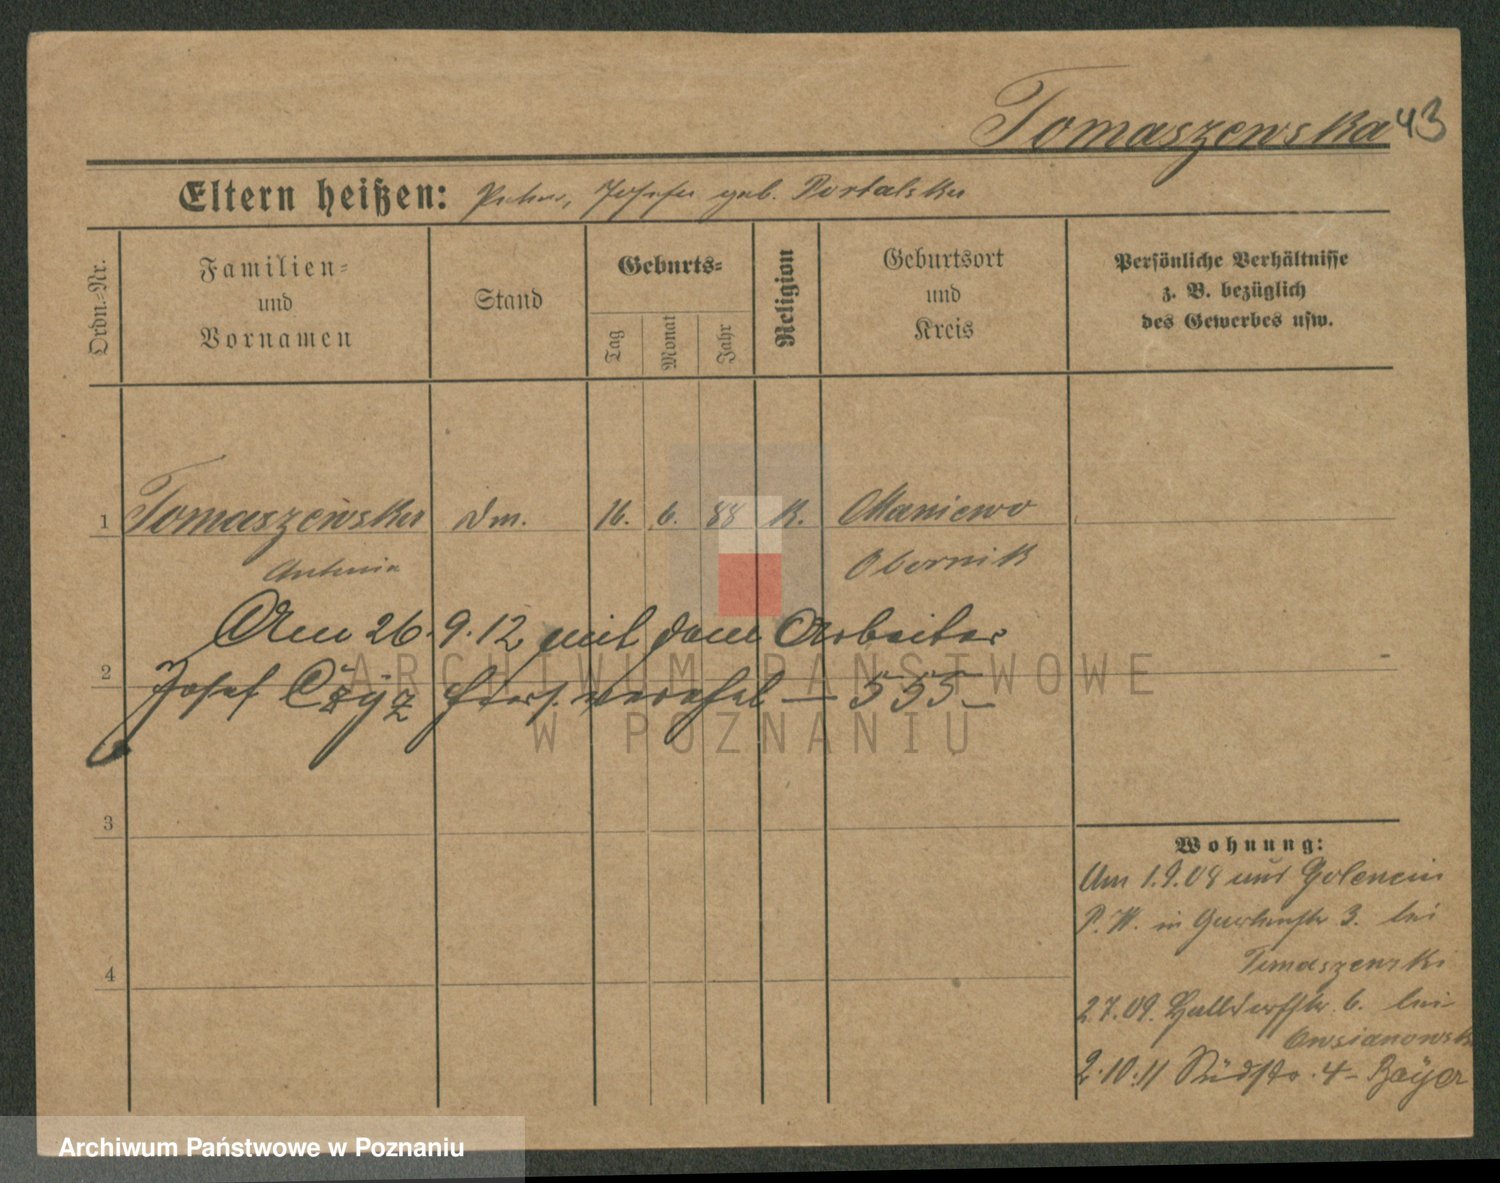 Tomaszewska 43
Eltern heißen: Josefa geb. Portalska
Ordn.-Nr.
Familien-
und
Vornamen
Stand
Geburts-
Tag
Monat
Jahr
Religion
Geburtsort
und
Kreis
Persönliche Verhältnisse
z. B. bezüglich
des Gewerbes usw.
1 Tomaszewska Dm. 16. 6. 88 K. Maniewo
Antonie Obornik
Am 26.9.12 mit dem Arbeiter
2 Josef Czÿz hiers. verehel — 555 —
3
4
Wohnung:
Am 1.9.08 aus Golencin
P. W. in Gartenstr 3. bei
Tomaszewski
2.7.09. Halldorfstr. 6. bei
Owsianowski
2.10.11 Südstr. 4 - Bayer
ARCHIWUM PAŃSTWOWE
W POZNANIU
Archiwum Państwowe w Poznaniu